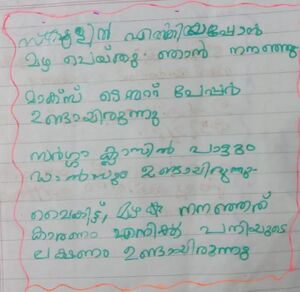 സ്കൂളിൽ എത്തിയപ്പോൾ
മഴ പെയ്തു. ഞാൻ നനഞ്ഞു
മാക്സ് ടെസ്റ്റ് പേപ്പർ
ഉണ്ടായിരുന്നു
സർഗ്ഗാ ക്ലാസിൽ പാട്ടും
ഡാൻസും ഉണ്ടായിരുന്നു.
വൈകിട്ട്, മഴ നനഞ്ഞത്
കാരണം എനിക്ക് പനിയുടെ
ലക്ഷണം ഉണ്ടായിരുന്നു